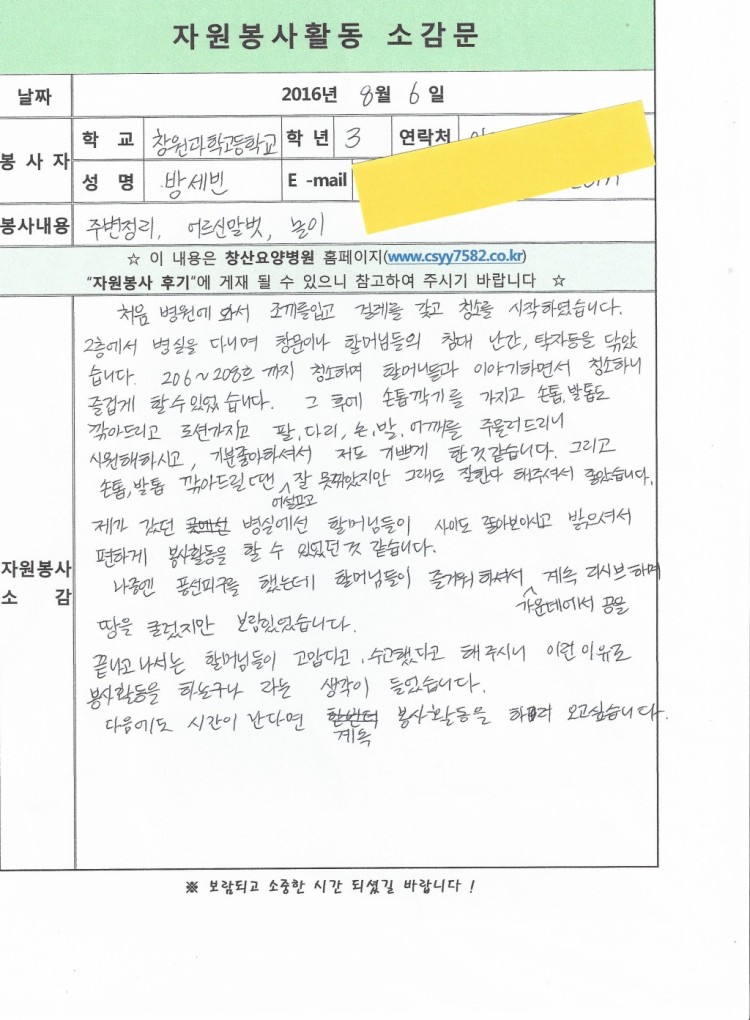 자원봉사활동 소감문
날짜 2016년 8월 6일
봉사자 학교 창원과학고등학교 학년 3 연락처
성명 방세빈 E-mail
봉사내용 주변정리, 어르신말벗, 놀이
☆ 이 내용은 창산요양병원 홈페이지(www.csyy7582.co.kr)
"자원봉사 후기"에 게재 될 수 있으니 참고하여 주시기 바랍니다 ☆
자원봉사 소감
처음 병원에 와서 조끼를입고 걸레를 갖고 청소를 시작하였습니다.
2층에서 병실을 다니며 창문이나 할머님들의 침대 난간, 탁자등을 닦았
습니다. 206~208호 까지 청소하며 할머니들과 이야기하면서 청소하니
즐겁게 할수있었습니다. 그 후에 손톱깎기를 가지고 손톱,발톱도
깎아드리고 로션가지고 팔,다리,손,발,어깨를 주물러드리니
시원해하시고, 기분좋아하셔서 저도 기쁘게 한것같습니다. 그리고
손톱,발톱 깎아드릴땐 어설프고 잘 못깎았지만 그래도 잘한다 해주셔서 좋았습니다.
제가 갔던 병실에선 할머님들이 사이도 좋아보이시고 밝으셔서
편하게 봉사활동을 할 수 있었던것 같습니다.
나중엔 풍선피구를 했는데 할머님들이 즐거워하셔서 가운데에서 공을 계속 리시브하며
땀을 흘렸지만 보람있었습니다.
끝나고나서는 할머님들이 고맙다고, 수고했다고 해주시니 이런이유로
봉사활동을 하는구나 라는 생각이 들었습니다.
다음에도 시간이 난다면 계속 봉사활동을 하러 오고싶습니다.
※ 보람되고 소중한 시간 되셨길 바랍니다 !